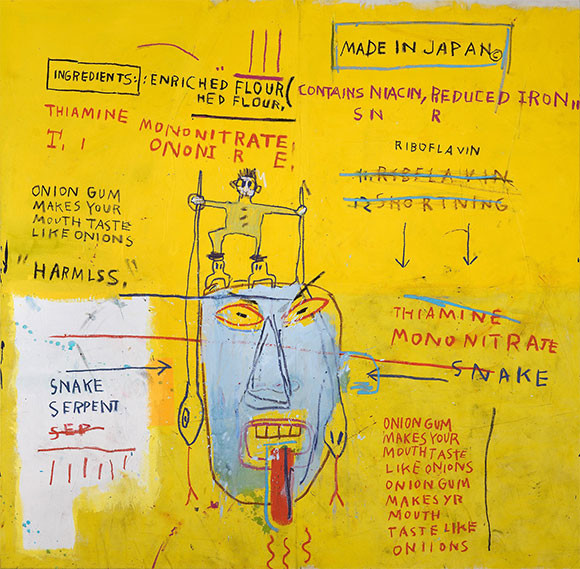 MADE IN JAPAN©
INGREDIENTS: : ENRICHED FLOUR (CONTAINS NIACIN, REDUCED IRON,,
HED FLOUR,
SN R
THIAMINE MONONITRATE,
T, I ONONI R E,
RIBOFLAVIN
11 RIBFLAVIN
12 SHORTNING
ONION GUM
MAKES YOUR
MOUTH TASTE
LIKE ONIONS
"HARMLSS."
THIAMINE
MONONITRATE
SNAKE
SNAKE
SERPENT
SEP
ONION GUM
MAKES YOUR
MOUTH TASTE
LIKE ONIONS
ONION GUM
MAKES YR
MOUTH
TASTE LIKE
ONIIONS